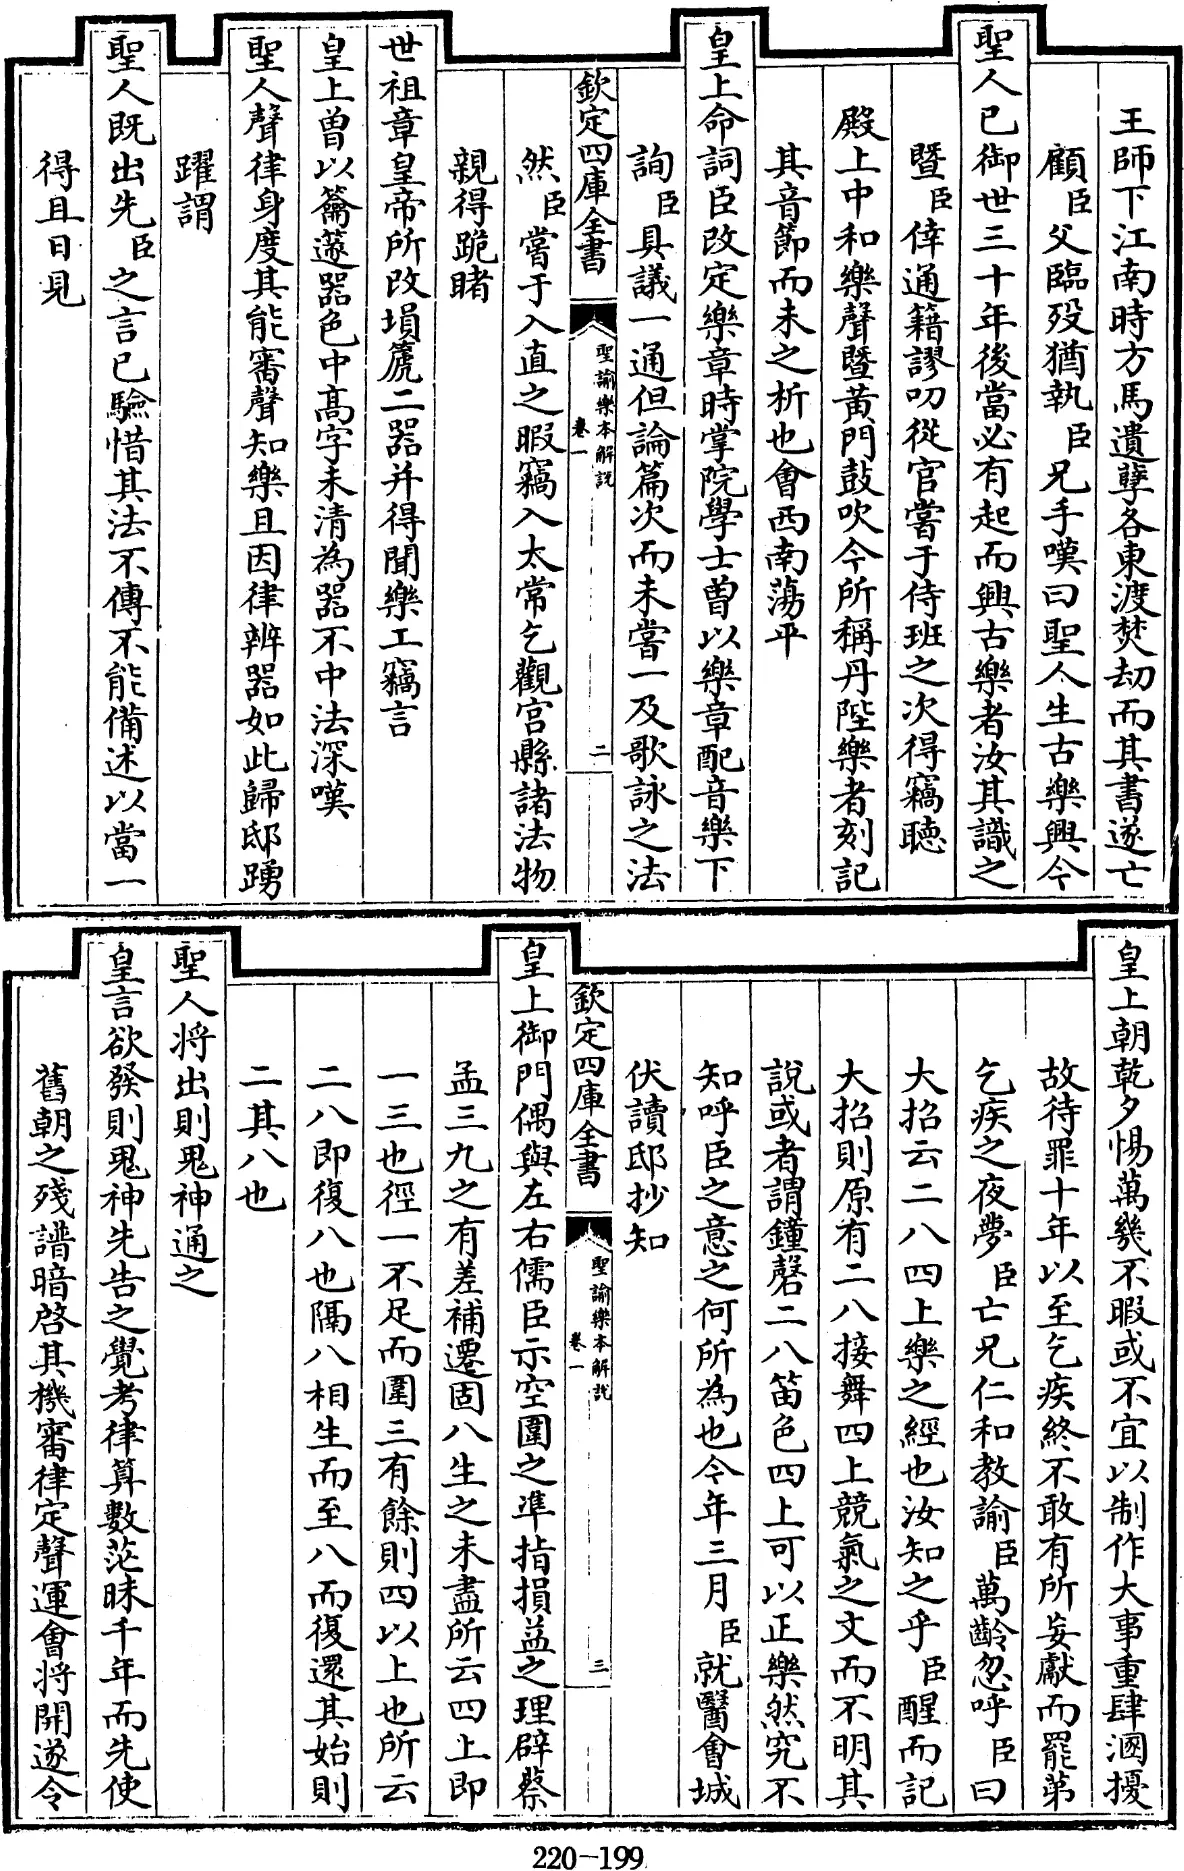 王師下江南時方馬遺孽各東渡焚劫而其書遂亡
顧臣父臨歿猶執臣兄手嘆曰聖人生古樂興今
聖人已御世三十年後當必有起而興古樂者汝其識之
暨臣倖通籍謬叨從官嘗于侍班之次得竊聽
殿上中和樂聲暨黃門鼓吹今所稱丹陛樂者刻記
其音節而未之析也會西南蕩平
皇上命詞臣改定樂章時掌院學士曾以樂章配音樂下
詢臣具議一通但論篇次而未嘗一及歌詠之法
欽定四庫全書
聖諭樂本解說
卷一
二
然臣嘗于入直之暇竊入太常乞觀宮縣諸法物
親得跪睹
世祖章皇帝所改塤篪二器并得聞樂工竊言
皇上曾以籥篴器色中高字未清為器不中法深嘆
聖人聲律身度其能審聲知樂且因律辨器如此歸邸踴
躍謂
聖人既出先臣之言已驗惜其法不傳不能備述以當一
得且日見
皇上朝乾夕惕萬幾不暇或不宜以制作大事重肆溷擾
故待罪十年以至乞疾終不敢有所妄獻而罷第
乞疾之夜夢臣亡兄仁和教諭臣萬齡忽呼臣曰
大招云二八四上樂之經也汝知之乎臣醒而記
大招則原有二八接舞四上競氣之文而不明其
說或者謂鐘磬二八笛色四上可以正樂然究不
知呼臣之意之何所為也今年三月臣就醫會城
伏讀邸抄知
欽定四庫全書
聖諭樂本解說
卷一
三
皇上御門偶與左右儒臣示空圍之準指損益之理辟蔡
孟三九之有差補遷固八生之未盡所云四上即
一三也徑一不足而圍三有餘則四以上也所云
二八即復八也隔八相生而至八而復還其始則
二其八也
聖人將出則鬼神通之
皇言欲發則鬼神先告之覺考律算數茫昧千年而先使
舊朝之殘譜暗啓其機審律定聲運會將開遂令
220-199